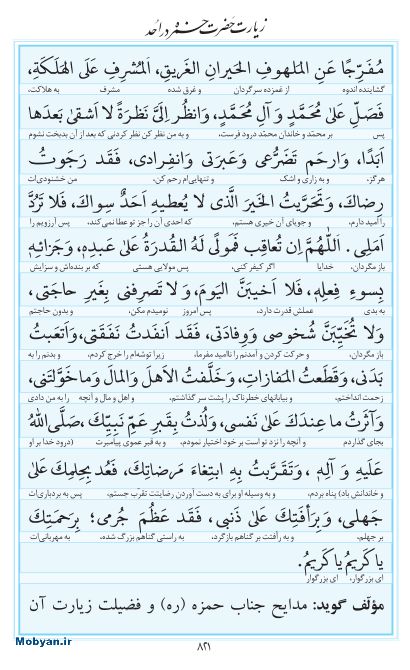 زیارت حضرت حمزه در اُحُد
مُفَرِّجًا عَنِ المَلهوفِ الحَیرانِ الغَریقِ، اَلمُشرِفِ عَلَی الهَلَکَةِ،
گشاینده اندوه از غمزده سرگردان و غرق شده مشرف به هلاکت،
فَصَلِّ عَلیٰ مُحَمَّدٍ وَ آلِ مُحَمَّدٍ، وَانظُر اِلَیَّ نَظرَةً لا اَشقیٰ بَعدَها
پس بر محمّد و خاندان محمّد درود فرست، و به من نظر کن نظر کردنی که بعد از آن بدبخت نشوم
اَبَدًا، وَارحَم تَضَرُّعی وَعَبرَتی وَانفِرادی، فَقَد رَجَوتُ
هرگز، و به زاری و اشک و تنهایی‌ام رحم کن، من خشنودی‌ات
رِضاکَ، وَتَحَرَّیتُ الخَیرَ الَّذی لا یُعطیهِ اَحَدٌ سِواکَ، فَلا تَرُدَّ
را امید دارم، و جویای آن خیری هستم، که احدی آن را جز تو عطا نمی‌کند، پس آرزویم را
اَمَلی. اَللّٰهُمَّ اِن تُعاقِب فَمَولًی لَهُ القُدرَةُ عَلیٰ عَبدِهِ، وَجَزائِهِ
باز مگردان، خدایا اگر کیفر کنی، پس مولایی هستی که بر بنده‌اش و سزایش
بِسوءِ فِعلِهِ، فَلا اَخیبَنَّ الیَومَ، وَلا تَصرِفنی بِغَیرِ حاجَتی،
به بدی عملش قدرت دارد، پس امروز نومیدم مکن، و بدون حاجتم
وَلا تُخَیِّبَنَّ شُخوصی وَوِفادَتی، فَقَد اَنفَدتُ نَفَقَتی، وَاَتعَبتُ
باز مگردان، و حرکت کردن و آمدنم را ناامید مفرما، زیرا توشه‌ام را خرج کردم، و بدنم را به
بَدَنی، وَقَطَعتُ المَفازاتِ، وَخَلَّفتُ الاَهلَ وَالمالَ وَما خَوَّلتَنی،
زحمت انداختم، و بیابانهای خطرناک را پشت سر گذاشتم، و اهل و مال و آنچه را به من دادی
وَآثَرتُ ما عِندَکَ عَلیٰ نَفسی، وَلُذتُ بِقَبرِ عَمِّ نَبِیِّکَ، صَلَّی اللهُ
بجای گذاردم و آنچه را نزد تو است بر خود اختیار نمودم، و به قبر عموی پیامبرت (درود خدا بر او
عَلَیهِ وَ آلِهِ، وَتَقَرَّبتُ بِهِ ابتِغاءَ مَرضاتِکَ، فَعُد بِحِلمِکَ عَلیٰ
و خاندانش باد) پناه بردم، و به وسیله او برای به دست آوردن رضایتت تقرب جستم، پس به بردباری‌ات
جَهلی، وَبِرَأفَتِکَ عَلیٰ ذَنبی، فَقَد عَظُمَ جُرمی؛ بِرَحمَتِکَ
بر جهلم، و به رأفتت بر گناهم بازگرد، به راستی گناهم بزرگ شده، به مهربانی‌ات
یا کَریمُ یا کَریمُ.
ای بزرگوار، ای بزرگوار
مؤلّف گوید: مدایح جناب حمزه (ره) و فضیلت زیارت آن
Mobyan.ir
۸۲۱